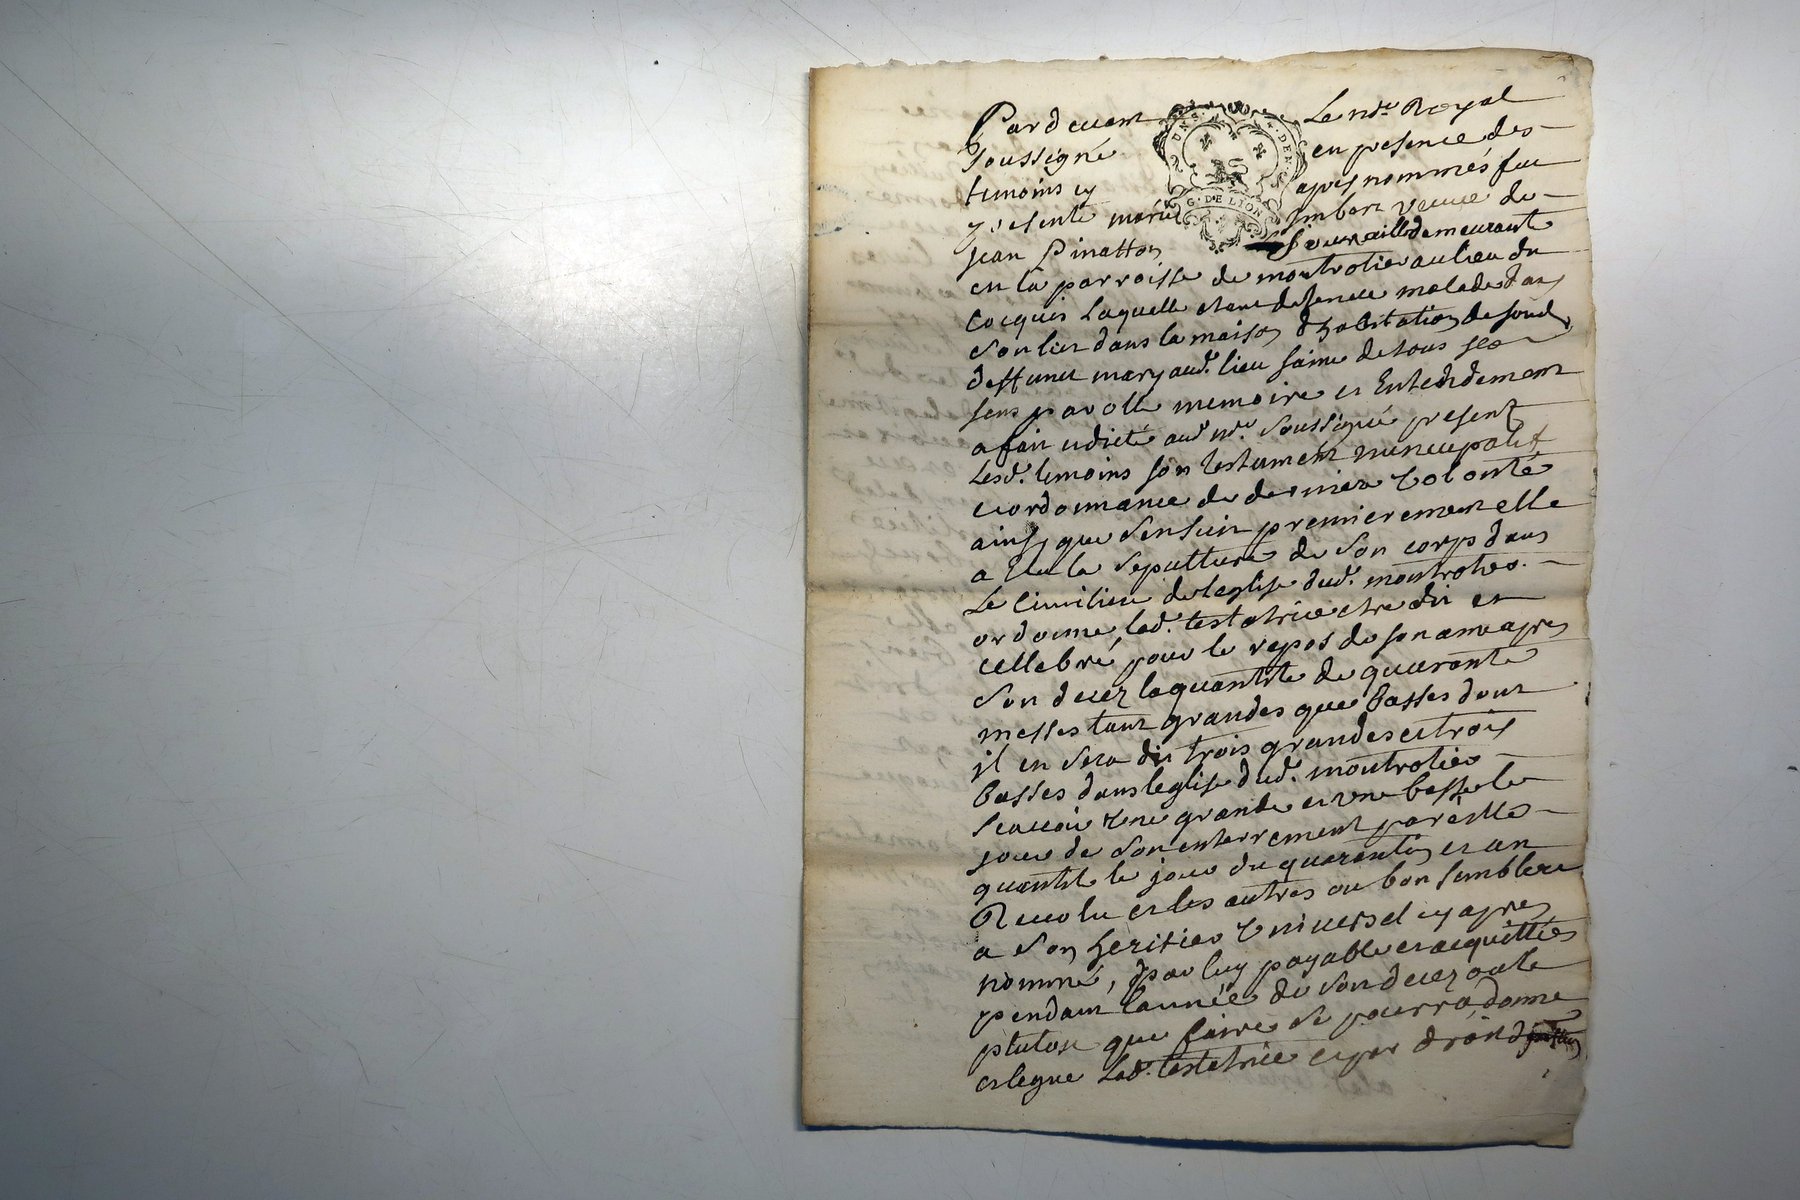 Pardevant Le no.re Royal
soussigné en presence des
temoins cy apres nommés fut
presente marie Imbert veuve de
Jean Pinatton demeurant
en la parroisse de montrotier au lieu du
Cocquis Laquelle etant detenue malade dans
son lict dans la maison d'habitation de soud.
deffunct mary aud. lieu saine de tous ses
sens parolle memoire et Entendement
a fait et dicté aud. no.re soussigné present
Lesd. temoins son testament nuncupatif
et ordonnance de derniere volonté
ainsy que sensuit premierement elle
a Elu la sepulture de son corps dans
Le Cimitiere de leglise dud. montrotier
ordonne lad. testatrice etre dit et
cellebré pour le repos de son ame apres
son decez la quantité de quarante
messes tant grandes que Basses dont
il en sera dit trois grandes et trois
Basses dans leglise dud. montrotier
scavoir une grande et une basse le
jour de son enterrement pareille
quantité le jour du quarantin et an
Revolu et les autres ou bon semblera
a son heritier universel cy apres
nommé, par luy payable et acquittées
pendant l'année de son decez ou le
plutost que faire se pourra, donne
et legue Lad. testatrice et par droit d
G. DE LION